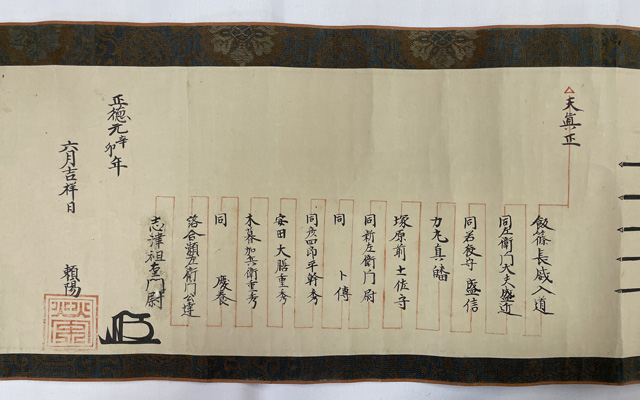 天真正
飯篠長威入道
同左衛門大夫盛近
同若狭守 盛信
力丸真
塚原前土佐守
同新左衛門尉
同 卜傳
同彦四郎平幹秀
安田大膳重秀
木暮加兵衛重秀
同 慶養
落合頼左衛門公達
志津祖重門尉
正徳元辛卯年
六月吉祥日
頼陽